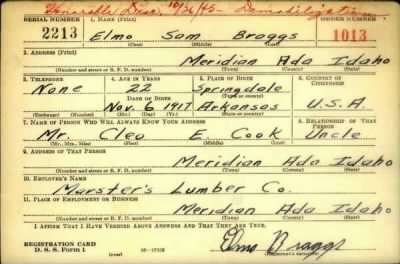 Honorable Disc. 10/26/45 - Demobilization
SERIAL NUMBER 1. NAME (Print) ORDER NUMBER
2213 Elmo Sam Braggs 1013
(First) (Middle) (Last)
2. ADDRESS (Print)
Meridian Ada Idaho
(Number and street or R. F. D. number) (Town) (County) (State)
3. TELEPHONE 4. AGE IN YEARS 5. PLACE OF BIRTH 6. COUNTRY OF CITIZENSHIP
None 22 Springdale
DATE OF BIRTH (Town or county)
Nov. 6 1917 Arkansas U.S.A.
(Exchange) (Number) (Mo.) (Day) (Yr.) (State or country)
7. NAME OF PERSON WHO WILL ALWAYS KNOW YOUR ADDRESS 8. RELATIONSHIP OF THAT PERSON
Mr. Cleo E. Cook Uncle
(Mr., Mrs., Miss) (First) (Middle) (Last)
9. ADDRESS OF THAT PERSON
Meridian Ada Idaho
(Number and street or R. F. D. number) (Town) (County) (State)
10. EMPLOYER'S NAME
Marster's Lumber Co.
11. PLACE OF EMPLOYMENT OR BUSINESS
Meridian Ada Idaho
(Number and street or R. F. D. number) (Town) (County) (State)
I AFFIRM THAT I HAVE VERIFIED ABOVE ANSWERS AND THAT THEY ARE TRUE.
REGISTRATION CARD
D. S. S. Form 1 (over) Elmo Braggs
(Registrant's signature)